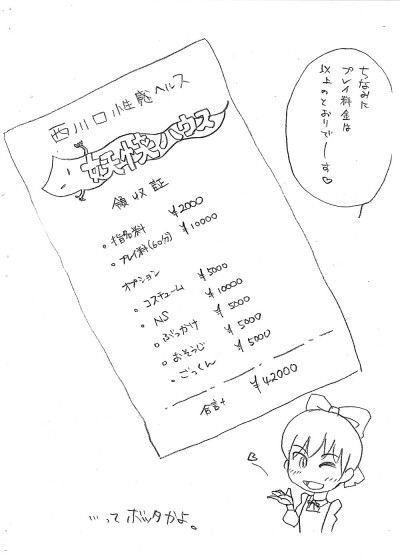 ちなみに
プレイ料金は
以上のとおりでーす♡
西川口性感ヘルス
妖怪ハウス
領収証
。指名料 ¥2000
。プレイ料(60分) ¥10000
オプション
。コスチューム ¥5000
。NS ¥10000
。ぶっかけ ¥5000
。おそうじ ¥5000
。ごっくん ¥5000
合計 ¥42000
…ってボッタかよ。